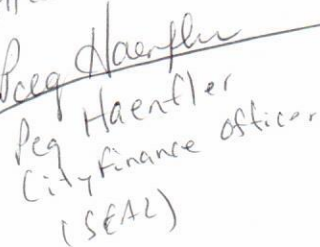 Peg Haenfler
Peg Haenfler
City Finance Officer
(SEAL)